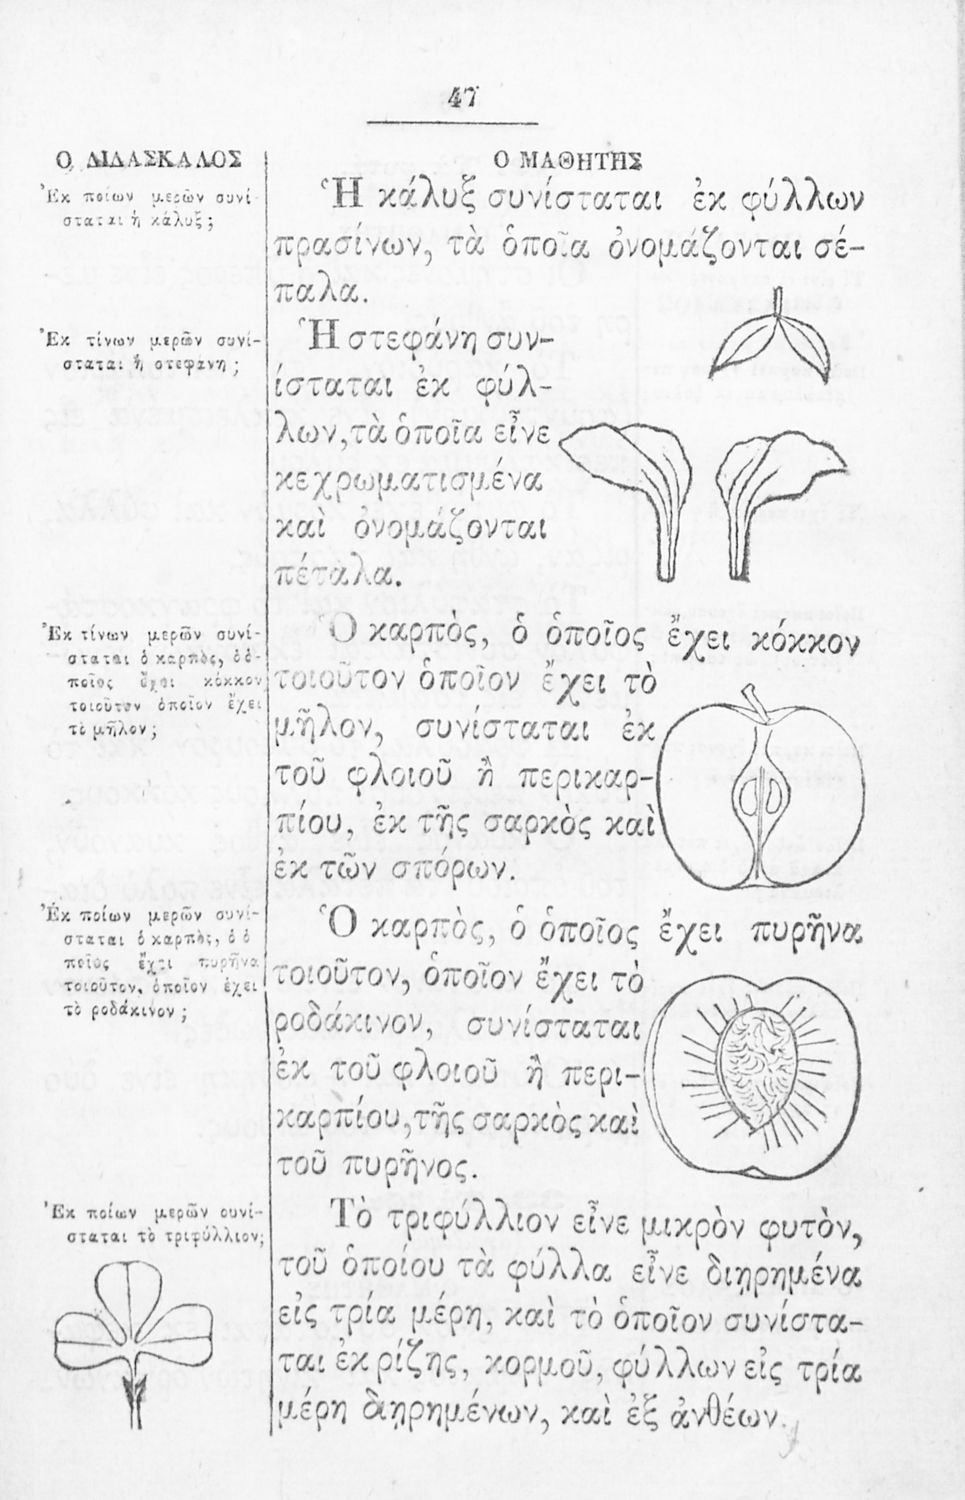 47
Ο ΔΙΔΑΣΚΑΛΟΣ
Ο ΜΑΘΗΤΗΣ
Ἐκ ποίων μερῶν συνί-
σταται ἡ κάλυξ;
Ἡ κάλυξ συνίσταται ἐκ φύλλων
πρασίνων, τὰ ὁποῖα ὀνομάζονται σέ-
παλα.
Ἐκ τίνων μερῶν συνί-
σταται ἡ στεφάνη;
Ἡ στεφάνη συν-
ίσταται ἐκ φύλ-
λων, τὰ ὁποῖα εἶνε
κεχρωματισμένα
καὶ ὀνομάζονται
πέταλα.
Ἐκ τίνων μερῶν συνί-
σταται ὁ καρπὸς, ὁ ὁ-
ποῖος ἔχει κόκκον
τοιοῦτον ὁποῖον ἔχει
τὸ μῆλον;
Ὁ καρπὸς, ὁ ὁποῖος ἔχει κόκκον
τοιοῦτον ὁποῖον ἔχει τὸ
μῆλον, συνίσταται ἐκ
τοῦ φλοιοῦ ἢ περικαρ-
πίου, ἐκ τῆς σαρκὸς καὶ
ἐκ τῶν σπόρων.
Ἐκ ποίων μερῶν συνί-
σταται ὁ καρπὸς, ὁ ὁ
ποῖος ἔχει πυρῆνα
τοιοῦτον, ὁποῖον ἔχει
τὸ ροδάκινον;
Ὁ καρπὸς, ὁ ὁποῖος ἔχει πυρῆνα
τοιοῦτον, ὁποῖον ἔχει τὸ
ροδάκινον, συνίσταται
ἐκ τοῦ φλοιοῦ ἢ περι-
καρπίου, τῆς σαρκὸς καὶ
τοῦ πυρῆνος.
Ἐκ ποίων μερῶν συνί-
σταται τὸ τριφύλλιον;
Τὸ τριφύλλιον εἶνε μικρὸν φυτὸν,
τοῦ ὁποίου τὰ φύλλα εἶνε διῃρημένα
εἰς τρία μέρη, καὶ τὸ ὁποῖον συνίστα-
ται ἐκ ρίζης, κορμοῦ, φύλλων εἰς τρία
μέρη διῃρημένων, καὶ ἐξ ἀνθέων.